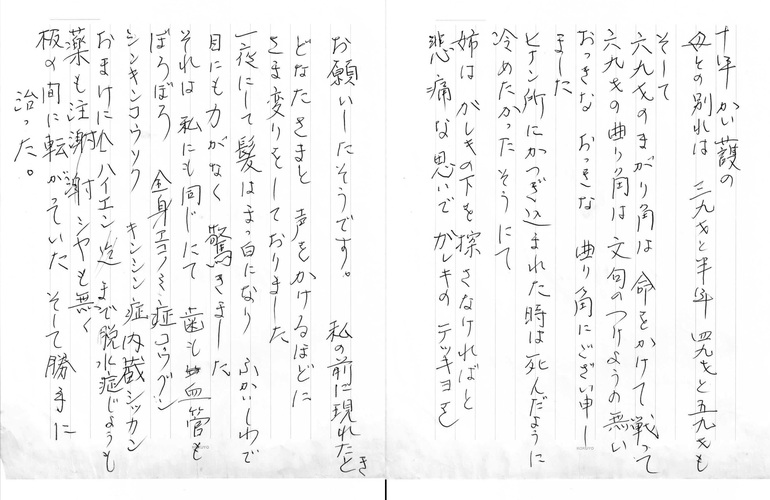 十年かい護の
母との別れは 三九才と半年 四九才と五九才も
そして
六九才のまがり角は 命をかけて戦って
六九才の曲り角は 文句のつけようの無い
おっきな おっきな 曲り角にござい申し
ました
ヒナン所にかつぎ込まれた時は死んだように
冷めたかったそうにて
姉は がレキの下を探さなければと
悲痛な思いで がレキの テッキョを
お願いしたそうです。 私の前に現れたとき
どなたさまと 声をかけるほどに
さま変りをしておりました
一夜にして髪はまっ白になり ふかいしわで
目にも力がなく 驚きました
それは 私にも同じにて 歯も血管も
ぼろぼろ 全身エコノミー症コウグン
シンキンコウソク キンシン症内蔵シッカン
おまけに ハイエン迄 まで脱水症じょうも
薬も注射 シャも無く
板の間に転がっていた そして勝手に
治った。